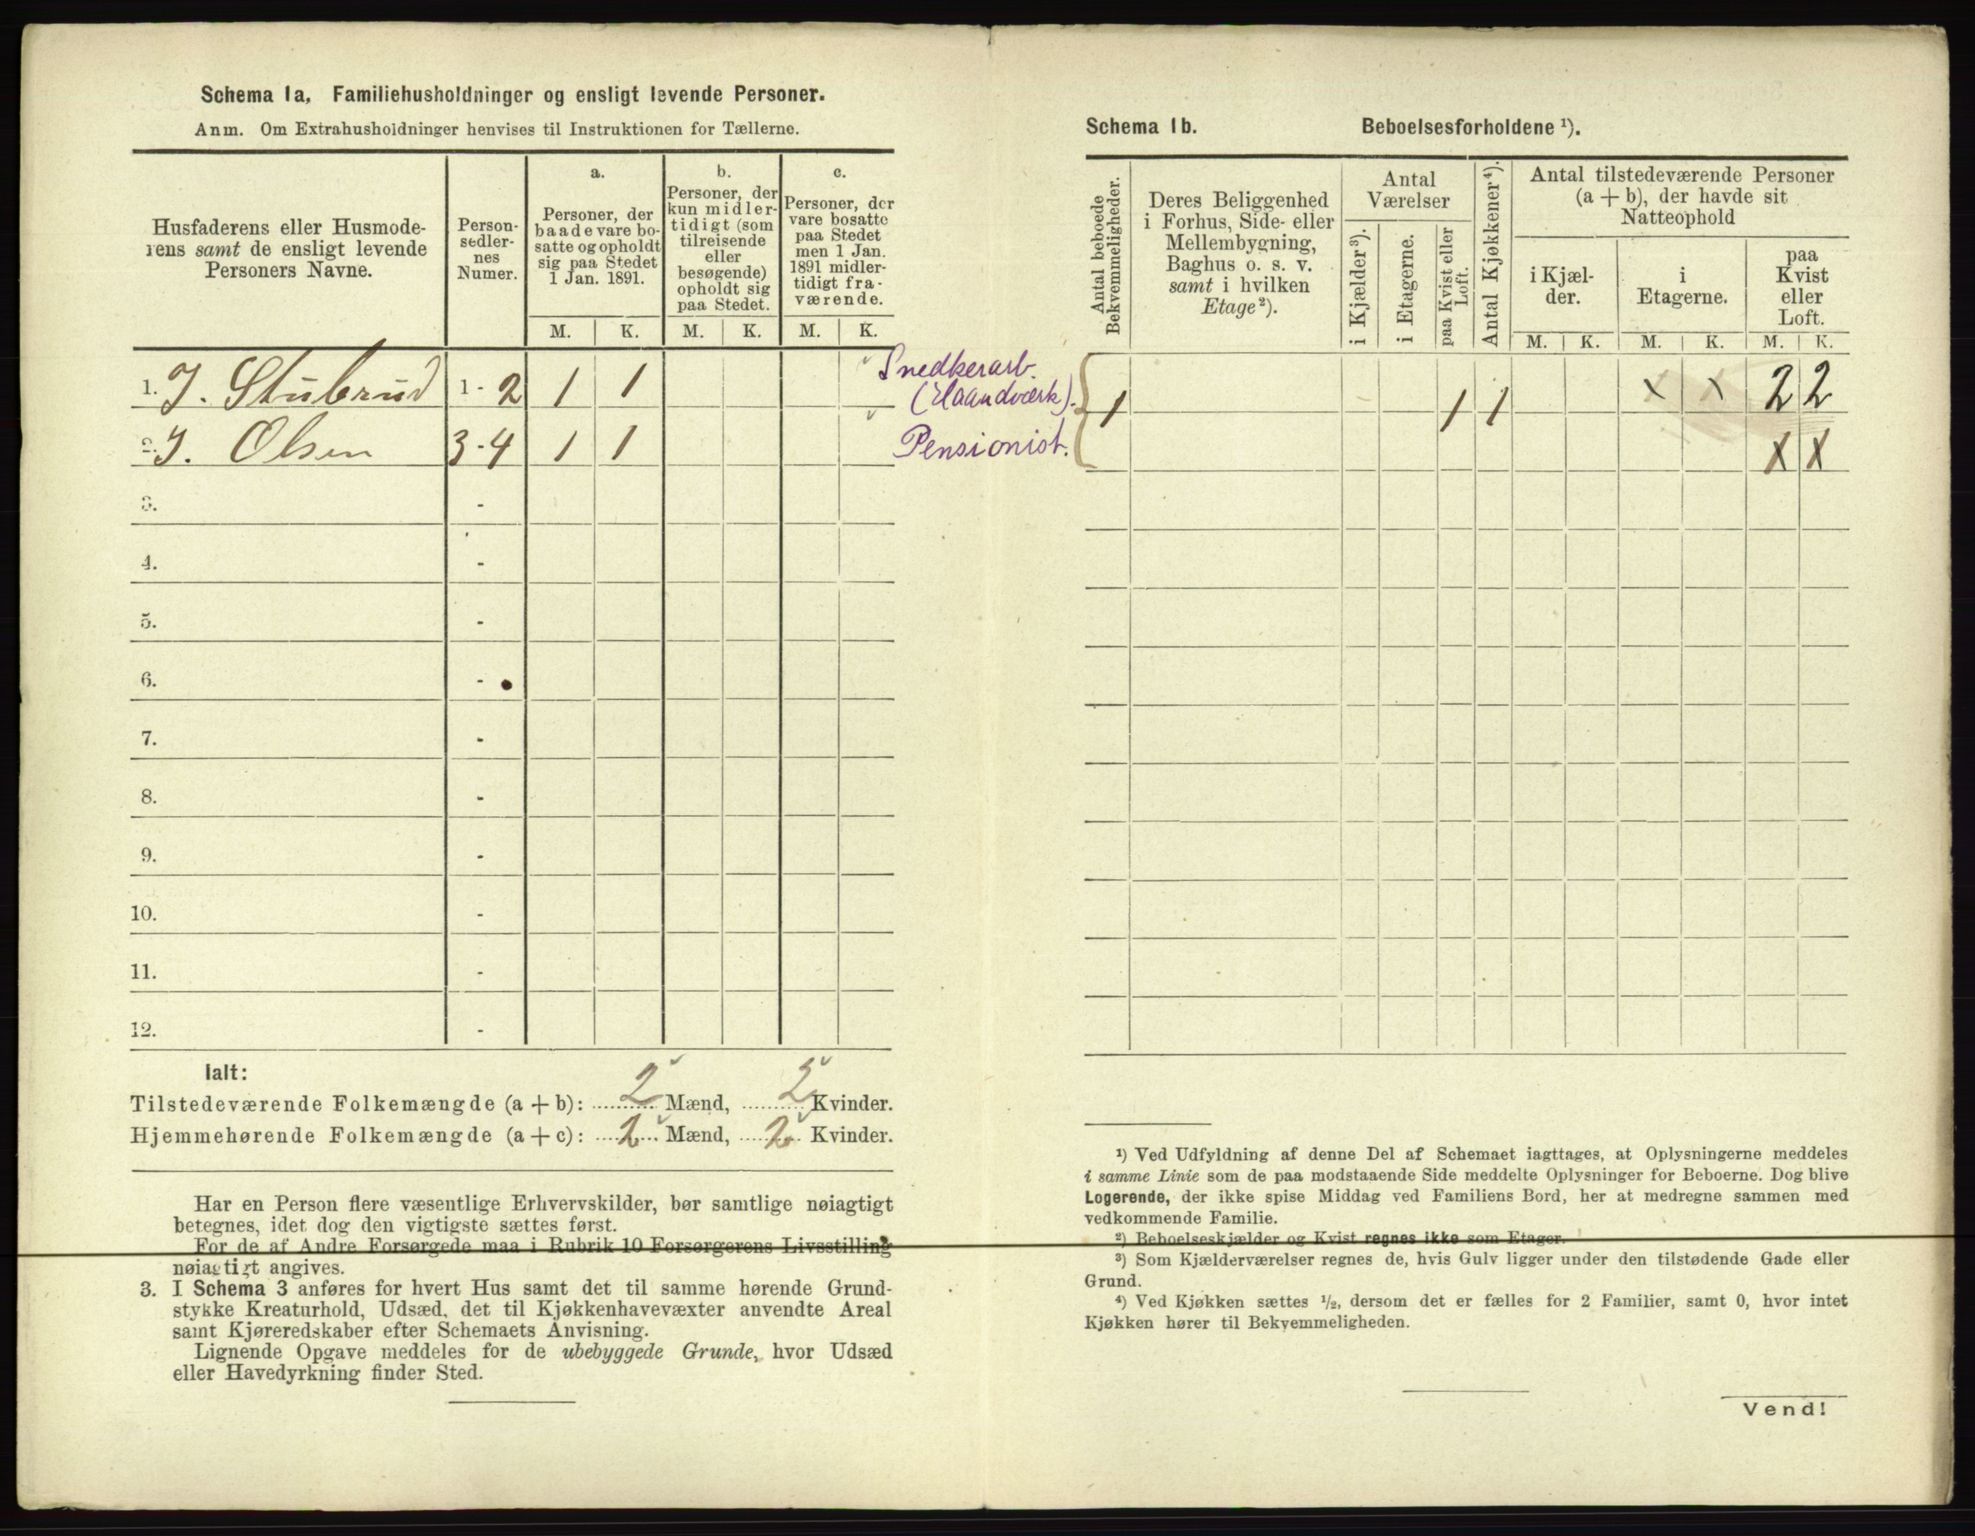 Schema 1a, Familiehusholdninger og ensligt levende Personer.
Anm. Om Extrahusholdninger henvises til Instruktionen for Tællerne.
Husfaderens eller Husmoderens samt de ensligt levende Personers Navne.
Personsedlernes Numer.
a.
Personer, der
baade vare bo-
satte og opholdt
sig paa Stedet
1 Jan. 1891.
b.
Personer, der
kun midler-
tidigt (som
tilreisende
eller
besøgende)
opholdt sig
paa Stedet.
c.
Personer, der
vare bosatte
paa Stedet
men 1 Jan.
1891 midler-
tidigt fra-
værende.
M. K. M. K. M. K.
1. J. Stubrud 1 - 2 1 1 Snedkerarb.
(Haandværk).
2. J. Olsen 3 - 4 1 1 Pensionist.
3. -
4. -
5. -
6. -
7. -
8. -
9. -
10. -
11. -
12. -
Ialt:
Tilstedeværende Folkemængde (a + b): 2 Mænd, 2 Kvinder.
Hjemmehørende Folkemængde (a + c): 2 Mænd, 2 Kvinder.
Har en Person flere væsentlige Erhvervskilder, bør samtlige nøiagtigt
betegnes, idet dog den vigtigste sættes først.
For de af Andre Forsørgede maa i Rubrik 10 Forsørgerens Livsstilling
nøiagtigt angives.
3. I Schema 3 anføres for hvert Hus samt det til samme hørende Grund-
stykke Kreaturhold, Udsæd, det til Kjøkkenhavevæxter anvendte Areal
samt Kjøreredskaber efter Schemaets Anvisning.
Lignende Opgave meddeles for de ubebyggede Grunde, hvor Udsæd
eller Havedyrkning finder Sted.
Schema 1b. Beboelsesforholdene ¹).
Antal beboede
Bekvemmeligheder.
Deres Beliggenhed
i Forhus, Side- eller
Mellembygning,
Baghus o. s. v.
samt i hvilken
Etage ²).
Antal
Værelser
i Kjælder ³).
i Etagerne.
paa Kvist eller
Loft.
Antal Kjøkkener ⁴).
Antal tilstedeværende Personer
(a + b), der havde sit
Natteophold
i Kjæl-
der.
i
Etagerne.
paa
Kvist
eller
Loft.
M. K. M. K. M. K.
1 1 1 x x 2 2
x x
¹) Ved Udfyldning af denne Del af Schemaet iagttages, at Oplysningerne meddeles
i samme Linie som de paa modstaaende Side meddelte Oplysninger for Beboerne. Dog blive
Logerende, der ikke spise Middag ved Familiens Bord, her at medregne sammen med
vedkommende Familie.
²) Beboelseskjælder og Kvist regnes ikke som Etager.
³) Som Kjælderværelser regnes de, hvis Gulv ligger under den tilstødende Gade eller
Grund.
⁴) Ved Kjøkken sættes ½, dersom det er fælles for 2 Familier, samt 0, hvor intet
Kjøkken hører til Bekvemmeligheden.
Vend!